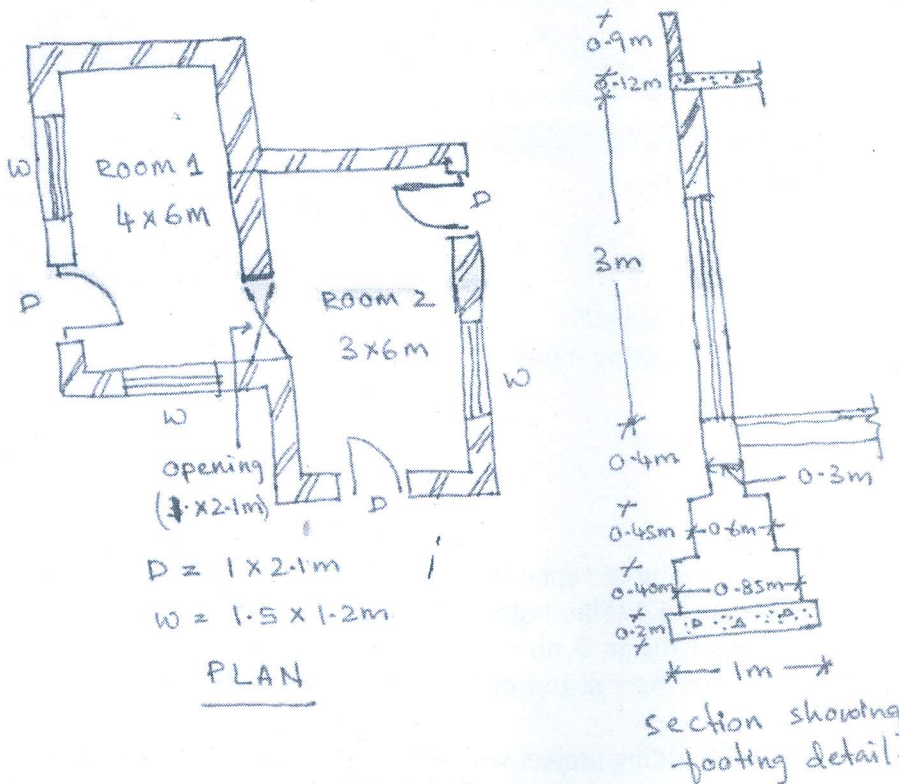 W
ROOM 1
4 x 6m
D
D
ROOM 2
3 x 6m
W
W
opening
(1 x 2.1m)
D
D = 1 x 2.1m
W = 1.5 x 1.2m
PLAN
0.9m
0.12m
3m
0.4m
0.3m
0.45m
0.6m
0.40m
0.85m
0.2m
1m
section showing
footing detail.